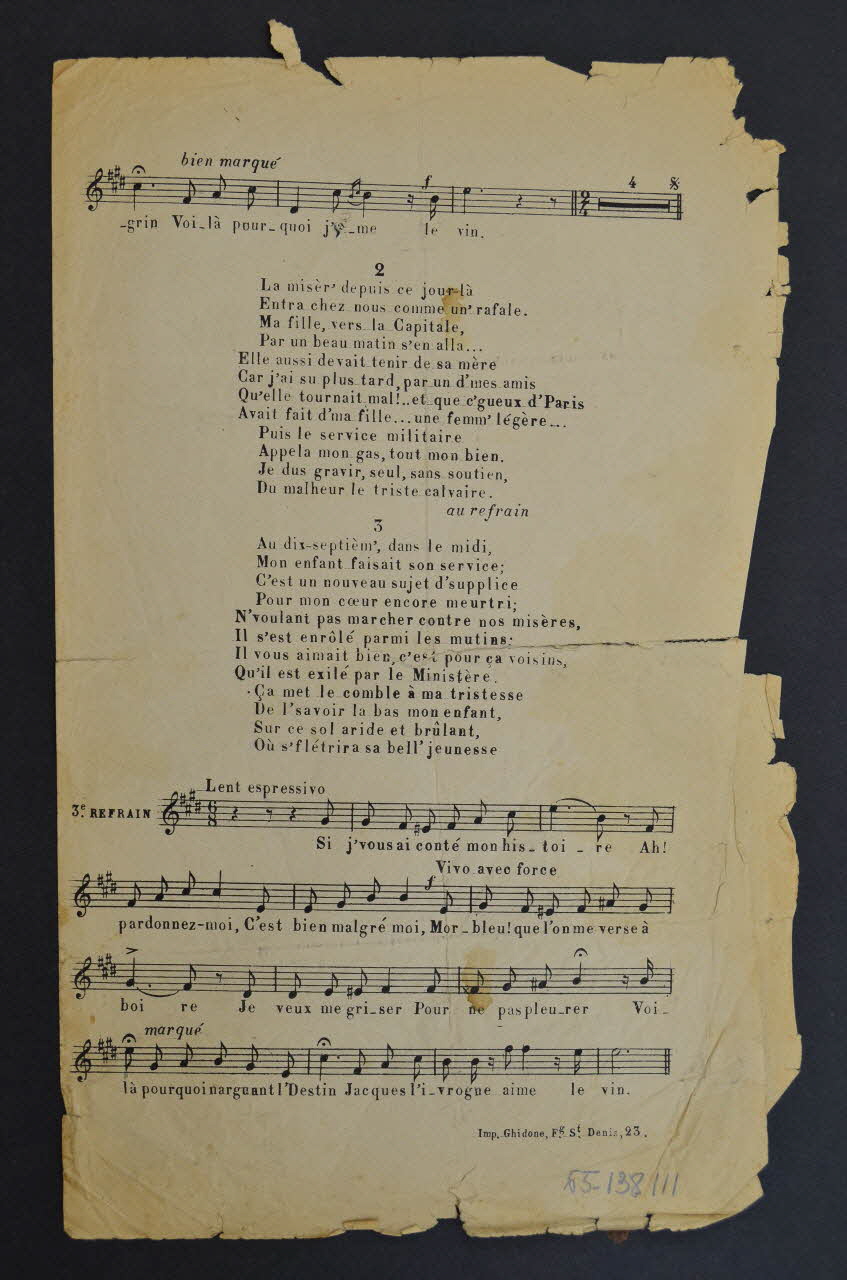 bien marqué
f
4
2
4
-grin Voi-là pour-quoi j'ai-me le vin.
2
La misèr' depuis ce jour-là
Entra chez nous comme un' rafale.
Ma fille, vers la Capitale,
Par un beau matin s'en alla...
Elle aussi devait tenir de sa mère
Car j'ai su plus tard, par un d'mes amis
Qu'elle tournait mal!..et que c'gueux d'Paris
Avait fait d'ma fille...une femm' légère...
Puis le service militaire
Appela mon gas, tout mon bien.
Je dus gravir, seul, sans soutien,
Du malheur le triste calvaire.
au refrain
3
Au dix-septièm', dans le midi,
Mon enfant faisait son service;
C'est un nouveau sujet d'supplice
Pour mon cœur encore meurtri;
N'voulant pas marcher contre nos misères,
Il s'est enrôlé parmi les mutins;
Il vous aimait bien, c'est pour ça voisins,
Qu'il est exilé par le Ministère.
Ça met le comble à ma tristesse
De l'savoir la bas mon enfant,
Sur ce sol aride et brûlant,
Où s'flétrira sa bell' jeunesse
Lent espressivo
3e. REFRAIN
6
8
Si j'vous ai conté mon his-toi-re Ah!
Vivo avec force
f
pardonnez-moi, C'est bien malgré moi, Mor-bleu! que l'on me verse à
boi re Je veux me gri-ser Pour ne pas pleu-rer Voi-
marqué
là pourquoi narguant l'Destin Jacques l'i-vrogne aime le vin.
Imp. Ghidone, Fg. St. Denis, 23.
65-138 111